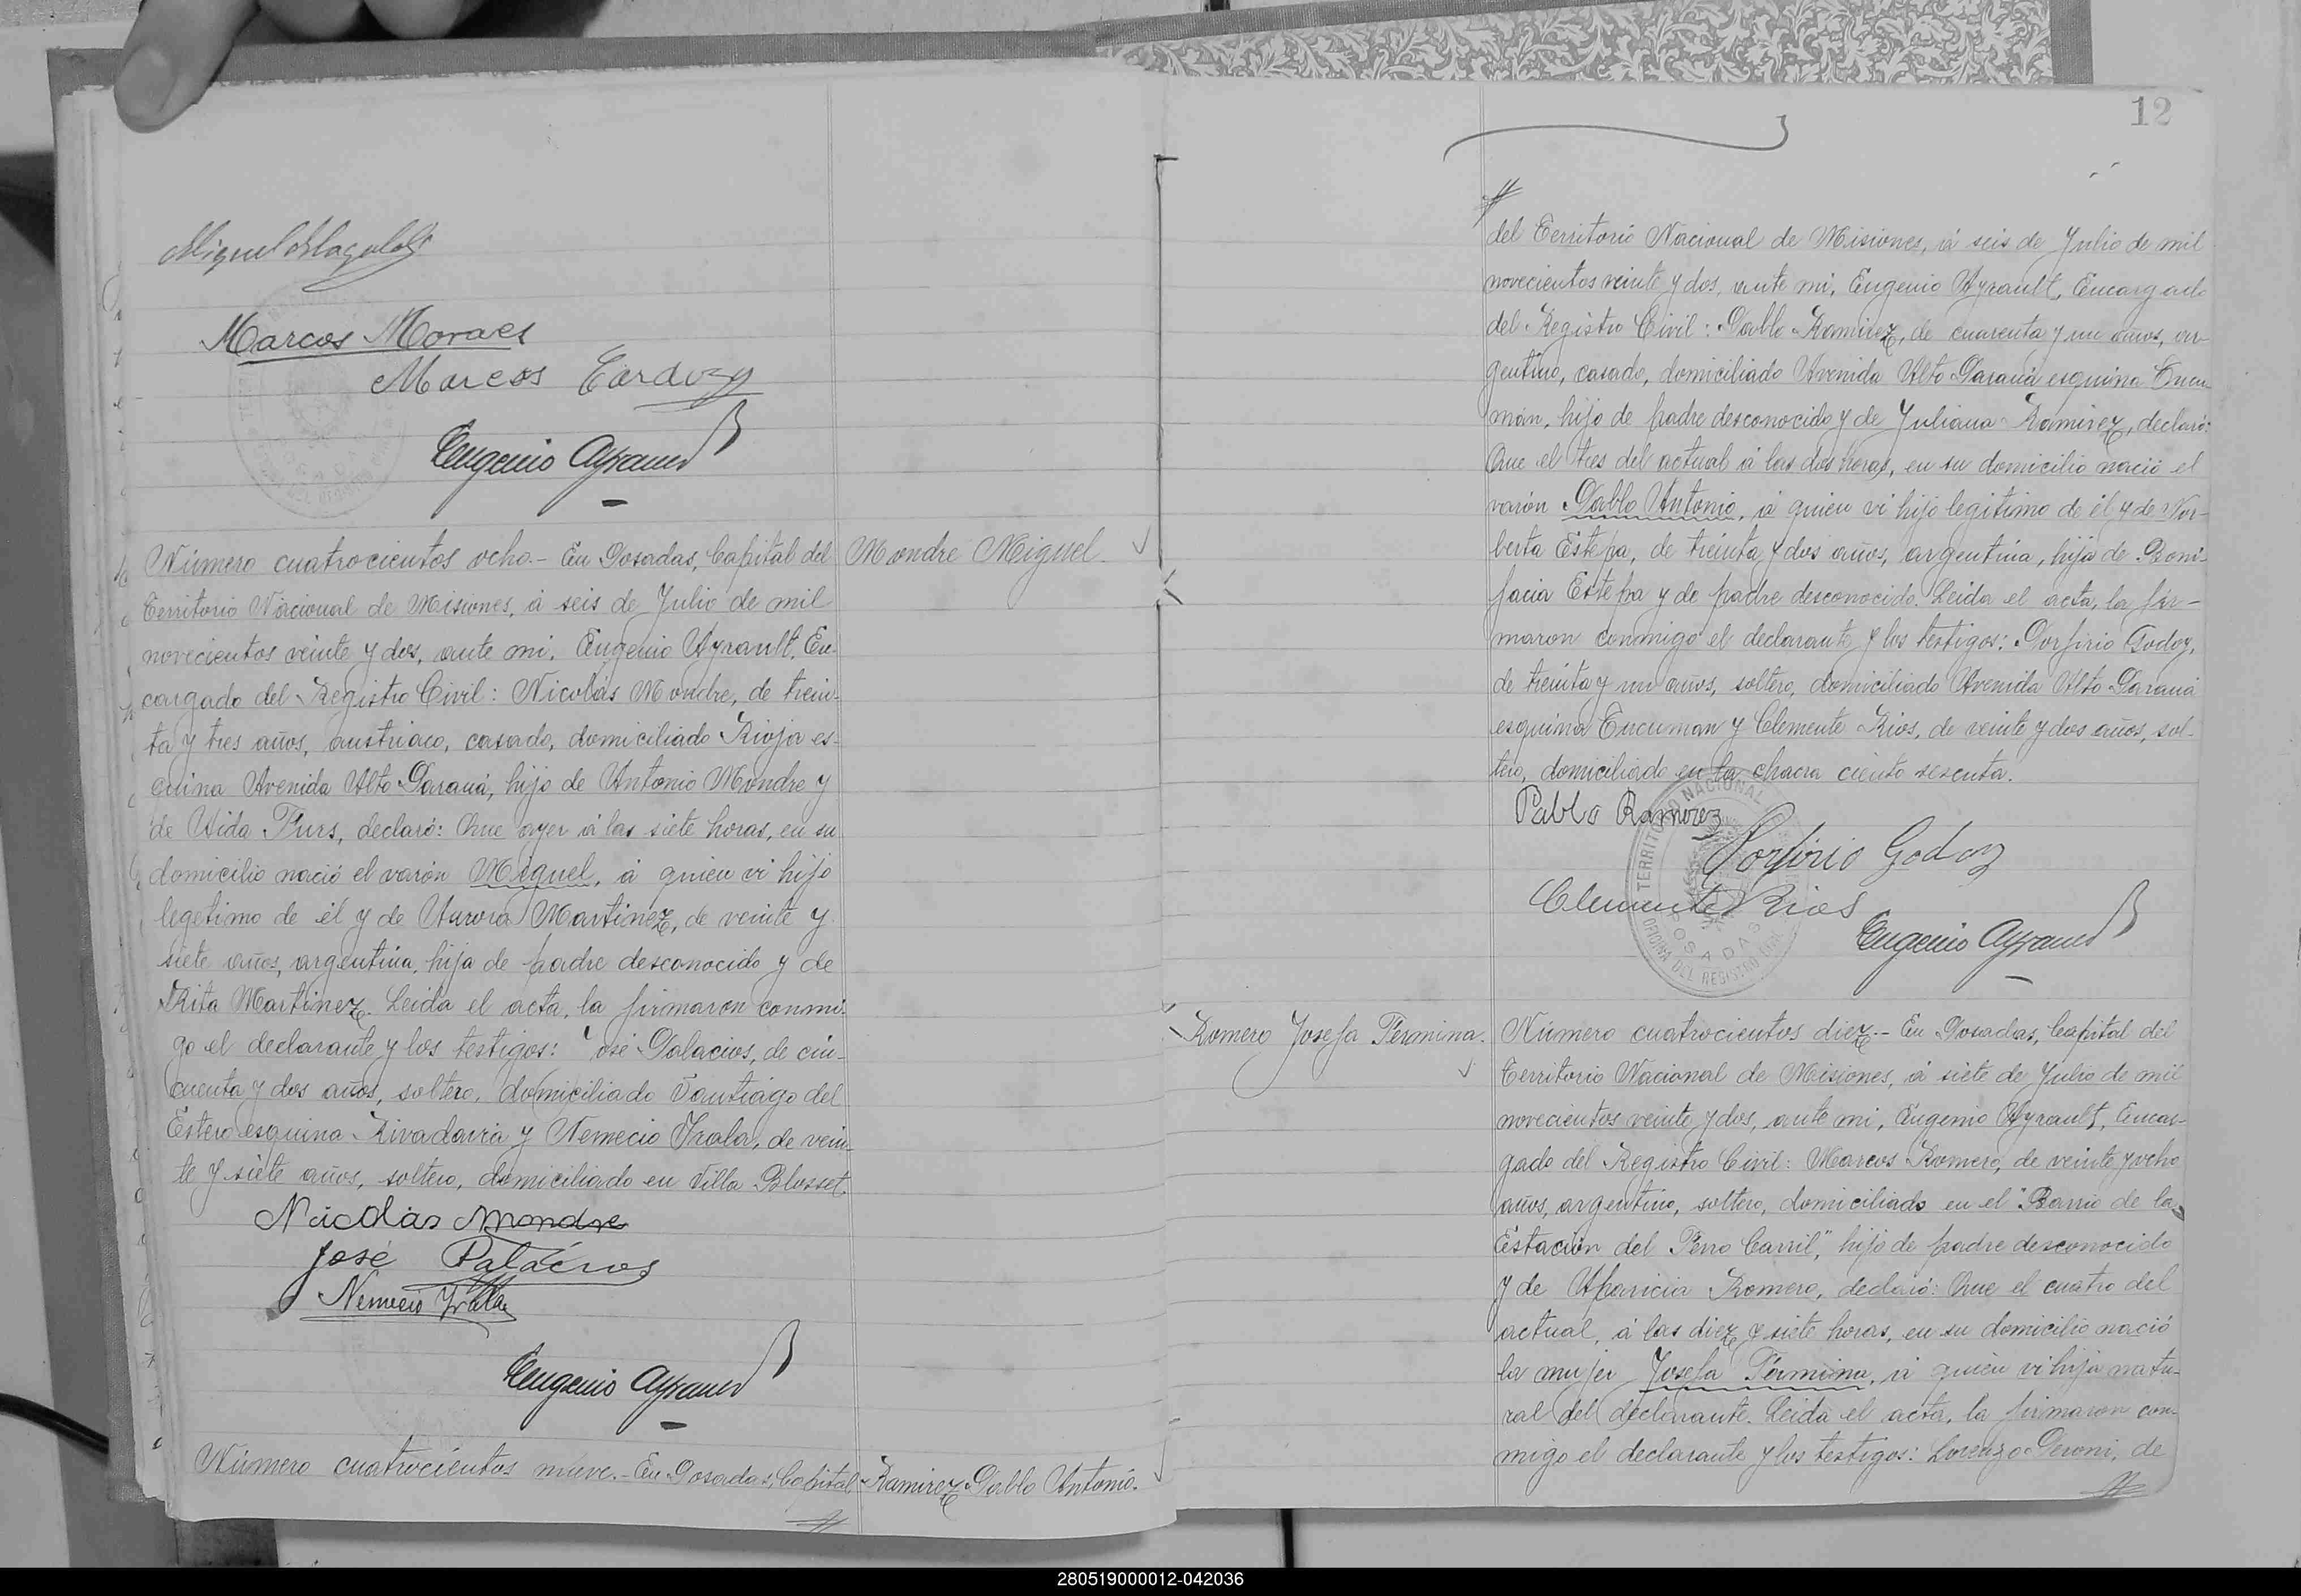 Marcos Moraes
Marcos Cardozo
Eugenio Ayrault
Número cuatrocientos ocho.- En Posadas, Capital del
Mondre Miguel.
Territorio Nacional de Misiones, á seis de Julio de mil
novecientos veinte y dos, ante mi, Eugenio Ayrault, En-
cargado del Registro Civil: Nicolás Mondre, de trein-
ta y tres años, austriaco, casado, domiciliado Rioja es-
quina Avenida Alto Paraná, hijo de Antonio Mondre y
de Aida Furs, declaró: Que ayer á las siete horas, en su
domicilio nació el varón Miguel, á quien vi hijo
legetimo de él y de Aurora Martinez, de veinte y
siete años, argentina, hija de padre desconocido y de
Rita Martinez. Leida el acta, la firmaron conmi-
go el declarante y los testigos: José Palacios, de cin-
cuenta y dos años, soltero, domiciliado Santiago del
Estero esquina Rivadavia y Nemecio Irala, de vein-
te y siete años, soltero, domiciliado en Villa Blosset.
Nicolás Mondre
José Palacios
Nemecio Yrala
Eugenio Ayrault
Número cuatrocientos nueve.- En Posadas, Capital
Ramirez Pablo Antonio.
12
del Territorio Nacional de Misiones, á seis de Julio de mil
novecientos veinte y dos, ante mi, Eugenio Ayrault, Encargado
del Registro Civil: Pablo Ramirez, de cuarenta y un años, ar-
gentino, casado, domiciliado Avenida Alto Paraná esquina Tucu-
mán, hijo de padre desconocido y de Juliana Ramirez, declaró:
Que el tres del actual á las dos horas, en su domicilio nació el
varón Pablo Antonio, á quien vi hijo legitimo de él y de Nor-
berta Estepa, de treinta y dos años, argentina, hija de Boni-
facia Estepa y de padre desconocido. Leida el acta, la fir-
maron conmigo el declarante y los testigos: Porfirio Godoy,
de treinta y un años, soltero, domiciliado Avenida Alto Paraná
esquina Tucuman y Clemente Rios, de veinte y dos años, sol-
tero, domiciliado en la chacra ciento sesenta.
Pablo Ramirez
Porfirio Godoy
Clemente Rios
Eugenio Ayrault
TERRITORIO NACIONAL
POSADAS
OFICINA DEL REGISTRO CIVIL
Romero Josefa Fermina.
Número cuatrocientos diez.- En Posadas, Capital del
Territorio Nacional de Misiones, á siete de Julio de mil
novecientos veinte y dos, ante mi, Eugenio Ayrault, Encar-
gado del Registro Civil: Marcos Romero, de veinte y ocho
años, argentino, soltero, domiciliado en el "Barrio de la
Estación del Ferro Carril," hijo de padre desconocido
y de Aparicia Romero, declaró: Que el cuatro del
actual, á las diez y siete horas, en su domicilio nació
la mujer Josefa Fermina, á quien vi hija natu-
ral del declarante. Leida el acta, la firmaron con-
migo el declarante y los testigos: Lorenzo Peroni, de
280519000012-042036